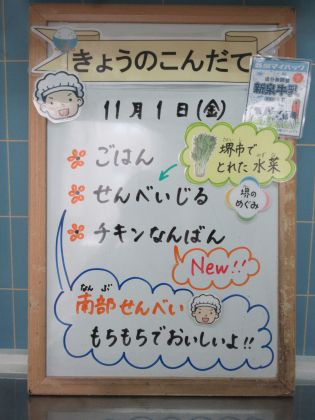 きょうのこんだて
新泉牛乳
11月1日(金)
ごはん
堺市で
とれた水菜
せんべいじる
堺の
めぐみ
チキンなんばん
New!!
なんぶ
南部せんべい
もちもちでおいしいよ!!